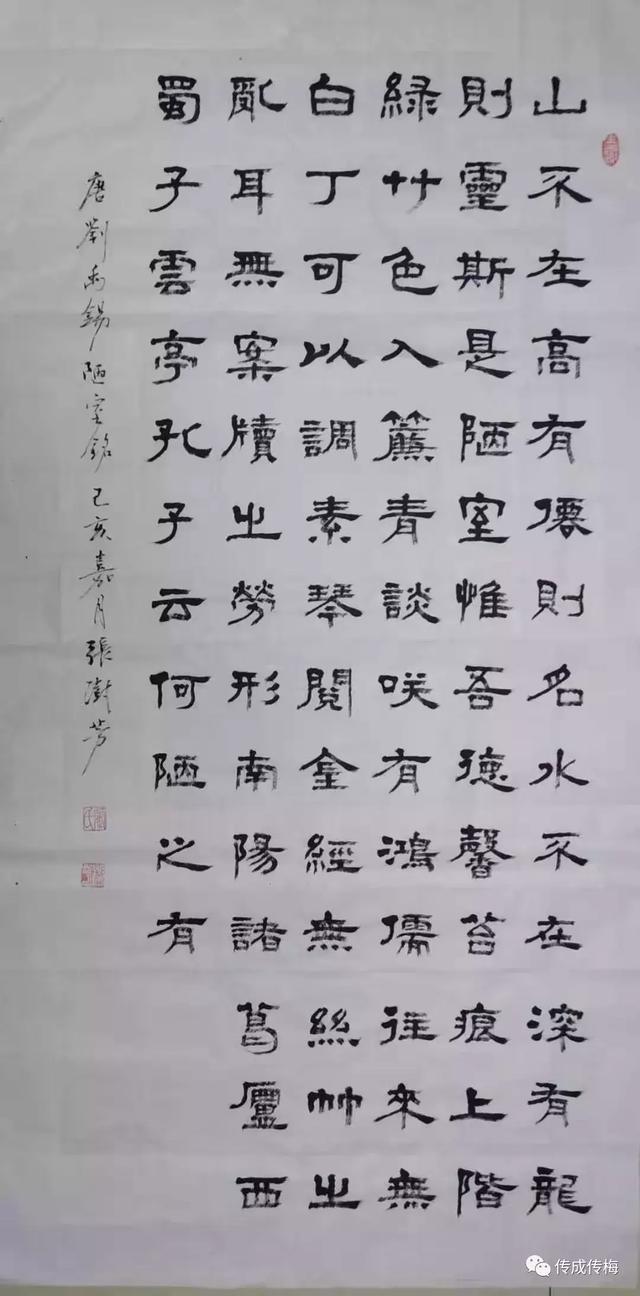 山不在高有僊則名水不在深有龍
則靈斯是陋室惟吾德馨苔痕上階
綠艸色入簾青談咲有鴻儒往來無
白丁可以調素琴閱金經無絲竹之
亂耳無案牘之勞形南陽諸葛廬西
蜀子雲亭孔子云何陋之有
唐劉禹錫陋室銘己亥嘉月張樹芳
传成传梅